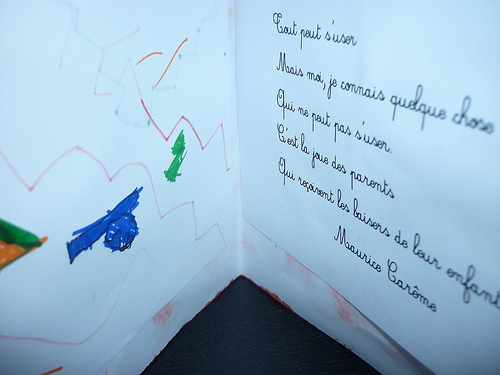 Tout peut s'user
Mais moi, je connais quelque chose
Qui ne peut pas s'user.
C'est la joue des parents
Qui reçoivent les baisers de leur enfant
Maurice Carême